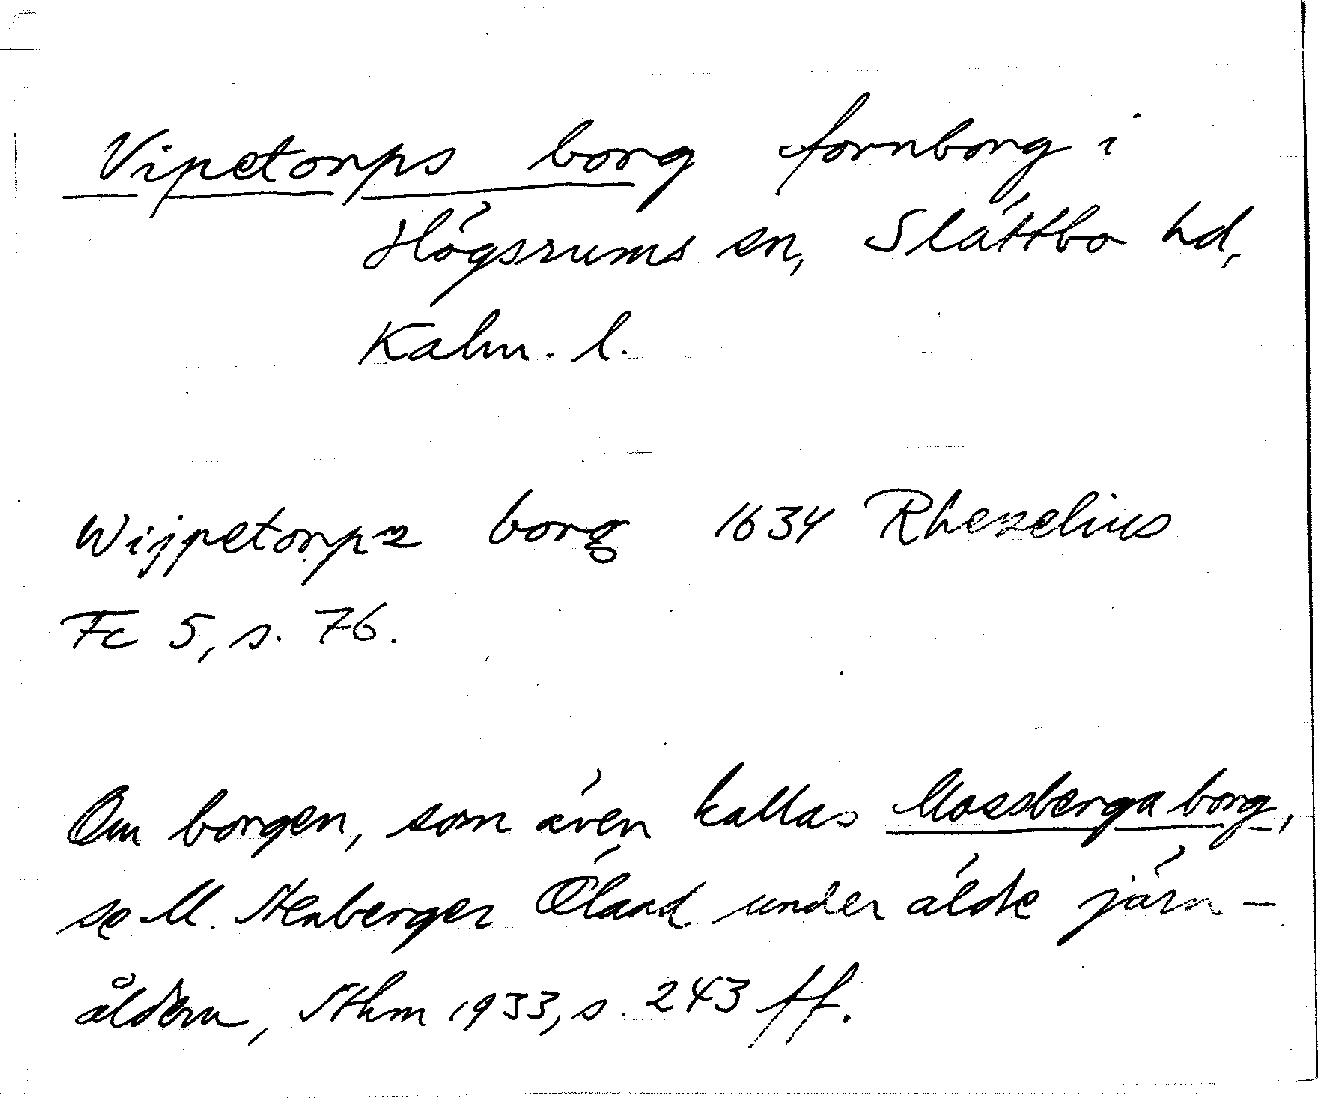 Vipetorps borg fornborg i
Högsrums sn, Slättbo hd,
Kalm. l.
Wijpetorpz borg 1634 Rhezelius
Fc 5, s. 76.
Om borgen, som även kallas Mossberga borg,
se M. Stenberger Öland under äldre järn-
åldern, Sthm 1933, s. 243 ff.